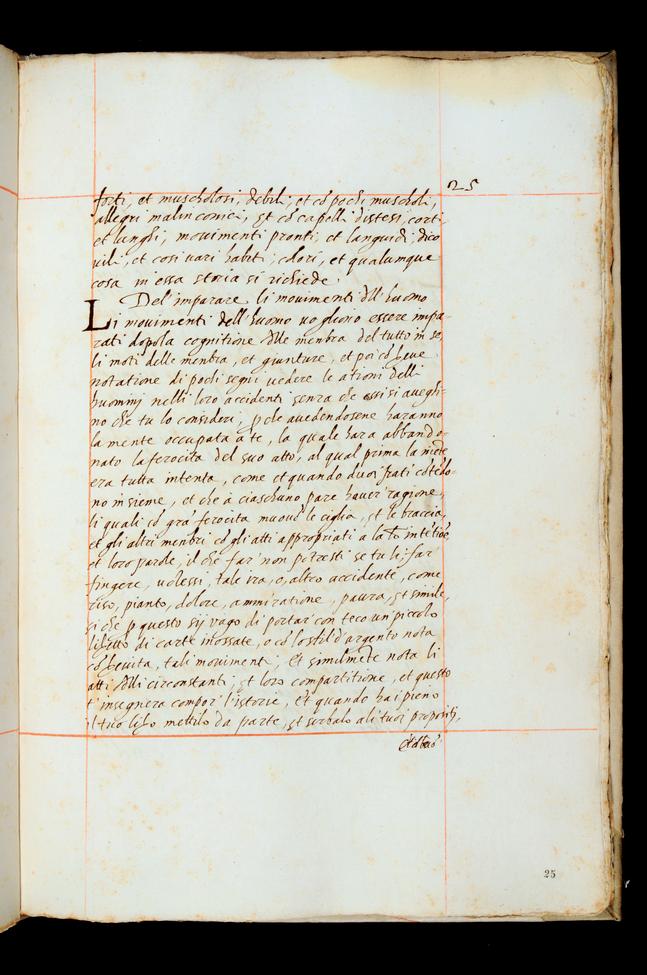 25
forti, et muscholosi, debili, et cõ pochi muscholi,
allegri malinconici, et cõ capelli distesi, corti,
et lunghi, movimenti pronti, et languidi; dico
vili, et cosi vari habiti; colori, et qualumque
cosa in essa storia si richiede.
Del'imparare li movimenti dell' huomo
Li movimenti dell' huomo vogliono essere impa-
rati dopo la cognitione delle menbra del tutto in se,
li moti delle menbra, et giunture, et poi cõ breve
notatione di pochi segni vedere le ationi delli
huominij nelli loro accidenti senza che essi si avegh-
no che tu lo consideri, p che avedendosene haranno
la mente occupata à te, la quale hara abbando-
nato la ferocita del suo atto, al qual prima la mẽte
era tutta intenta, come et quando duoi irati cõtẽdo-
no insieme, et che à ciaschuno pare haver ragione,
li quali cõ grã ferocita muovẽ le ciglia, et le braccia,
et gli altri menbri cõ gli atti appropriati a la
et loro parole, il che far' non potresti se tu li far
fingere, volessi, tale ira, o, altro accidente, come
riso, pianto, dolore, ammiratione, paura, et simile,
si che p questo sij vago di portar con teco un piccolo
libretto di carte inossate, o cõ lo stil d'argento nota
cõ brevita, tali movimenti; et similmẽte nota li
atti delli circonstanti; et loro compartitione, et questo
t' insegnera compor l'istorie, et quando hai pieno
il tuo libro mettilo da parte, et serbalo a li tuoi propositi,
25